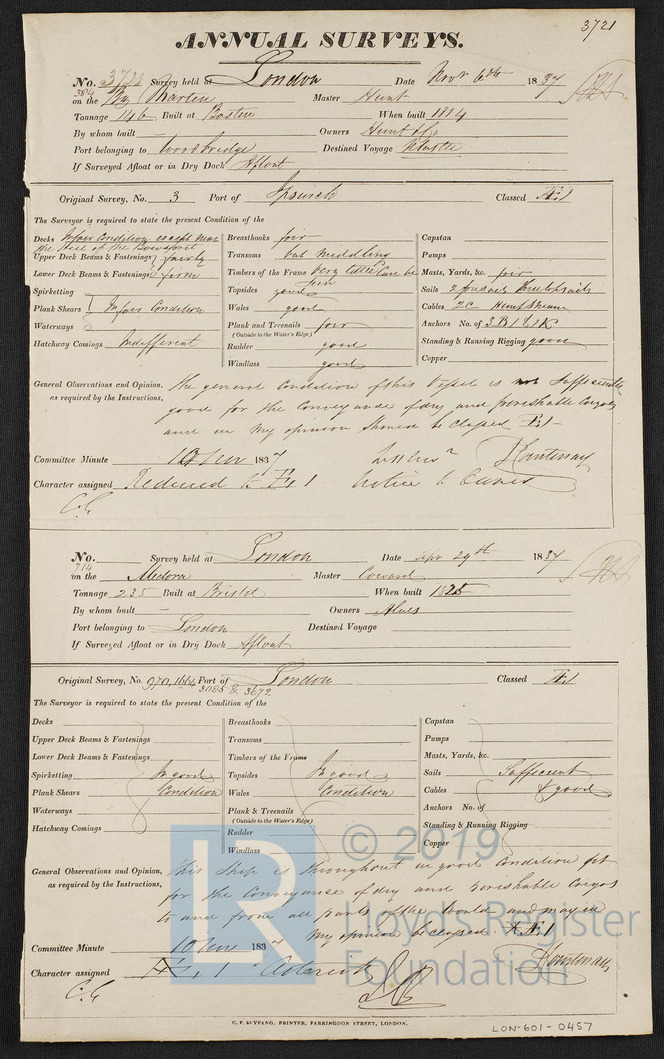 3721
ANNUAL SURVEYS.
No. 3721 Survey held at London Date Novr 6th 1837
384 on the Bg Master Hunt
Tonnage 146 Built at Boston When built 1814
By whom built — Owners Hunt &Co
Port belonging to Woodbridge Destined Voyage
If Surveyed Afloat or in Dry Dock Afloat
Original Survey, No. 3 Port of Ipswich Classed Æ1
The Surveyor is required to state the present Condition of the
Decks In fair Condition except near
the Heel of the Bowsprit
Upper Deck Beams & Fastenings fairly
Lower Deck Beams & Fastenings firm
Spirketting
Plank Shears In fair Condition
Waterways
Hatchway Comings Indifferent
Breasthooks fair
Transoms but middling
Timbers of the Frame Very little Can be
seen
Topsides good
Wales good
Plank and Treenails fair
(Outside to the Water's Edge)
Rudder good
Windlass good
Capstan
Pumps
Masts, Yards, &c. fair
Sails 2
Cables 2C Hemp Stream
Anchors No. of 3B 1S 1K
Standing & Running Rigging good
Copper
General Observations and Opinion,
as required by the Instructions,
The general Condition of this Vessel is not Sufficiently
good for the Conveyance of dry and perishable Cargoes
and in my opinion Should be Classed Æ1
Committee Minute 10 Novr 1837
Character assigned Reduced to Æ 1 Notice to Owners
No. Survey held at London Date Sepr 29th 1837
714 on the Medora Master Coward
Tonnage 235 Built at Bristol When built 1825
By whom built — Owners Alves
Port belonging to London Destined Voyage
If Surveyed Afloat or in Dry Dock Afloat
Original Survey, No. 970, 1664, Port of London Classed Æ1
3085 & 3672
The Surveyor is required to state the present Condition of the
Decks
Upper Deck Beams & Fastenings
Lower Deck Beams & Fastenings
Spirketting In good
Plank Shears Condition
Waterways
Hatchway Comings
Breasthooks
Transoms
Timbers of the Frame
Topsides In good
Wales Condition
Plank & Treenails
(Outside to the Water's Edge)
Rudder
Windlass
Capstan
Pumps
Masts, Yards, &c.
Sails Sufficient
Cables & good
Anchors No. of
Standing & Running Rigging
Copper
General Observations and Opinion,
as required by the Instructions,
This Ship is throughout in good Condition fit
for the Conveyance of dry and perishable Cargoes
to and from all parts of the World and may in
my opinion be Classed * Æ1
Committee Minute 10 Novr 1837
Character assigned Æ 1 Asterisk
LR © 2019
Lloyd's Register
Foundation
C. F. SEYFANG, PRINTER, FARRINGDON STREET, LONDON.
LON-601-0457